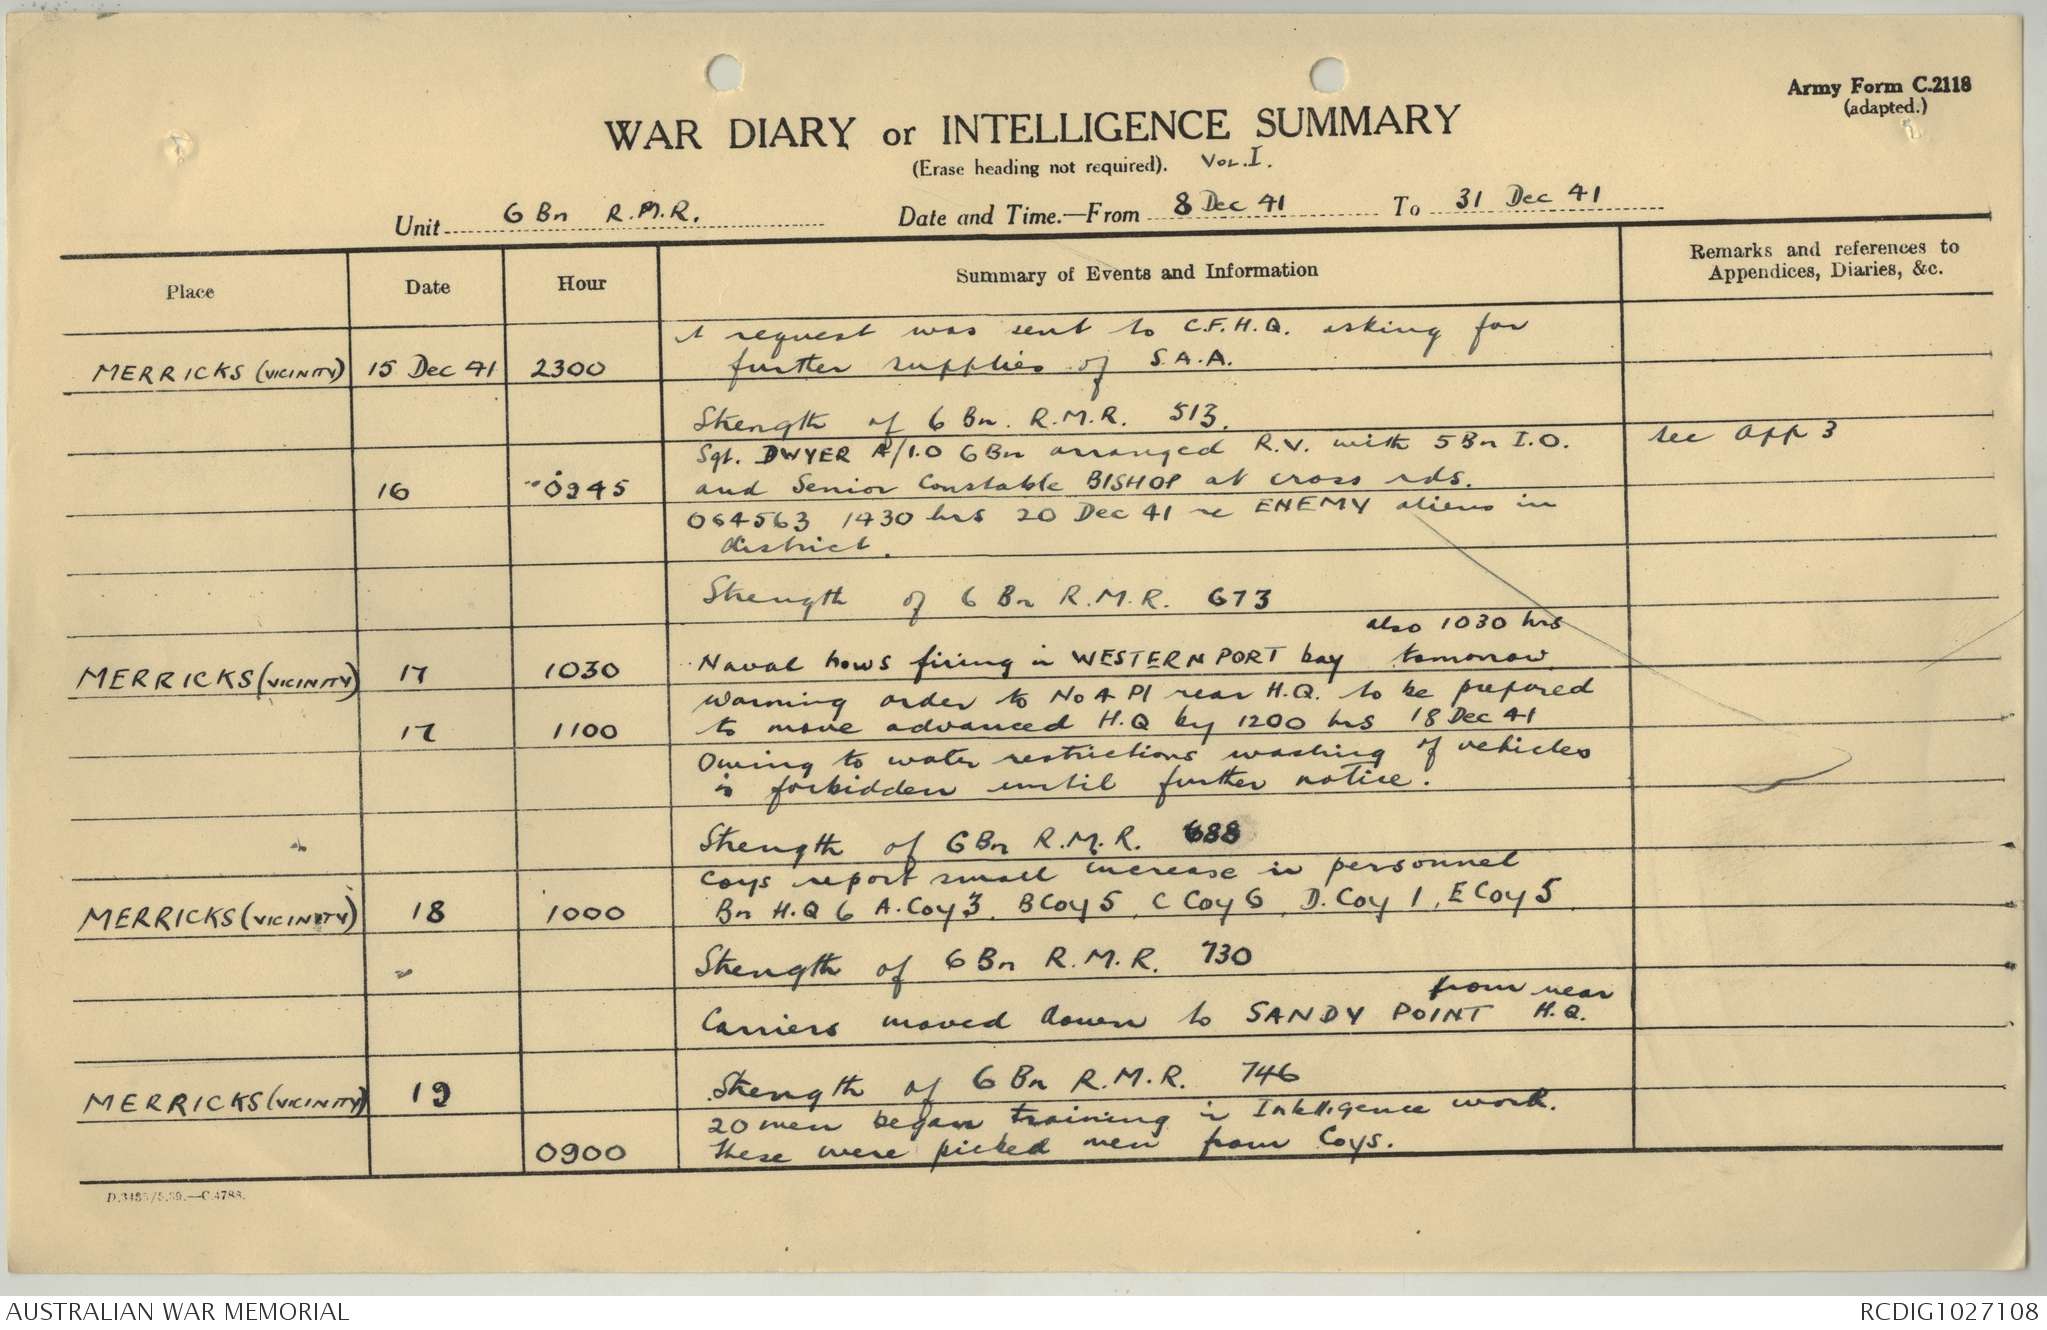 Army Form C.2118
(adapted.)
WAR DIARY or INTELLIGENCE SUMMARY
(Erase heading not required). VOL. I.
Unit 6 Bn R.M.R. Date and Time.—From 8 Dec 41 To 31 Dec 41
Place Date Hour Summary of Events and Information Remarks and references to
Appendices, Diaries, &c.
A request was sent to C.F.H.Q. asking for
MERRICKS (VICINITY) 15 Dec 41 2300 further supplies of S.A.A.
Strength of 6 Bn. R.M.R. 513.
Sgt. DWYER A/I.O 6 Bn arranged R.V. with 5 Bn I.O. see app 3
16 0945 and Senior Constable BISHOP at cross rds.
064563 1430 hrs 20 Dec 41 re ENEMY aliens in
district.
Strength of 6 Bn R.M.R. 673
also 1030 hrs
MERRICKS (VICINITY) 17 1030 Naval hows firing in WESTERNPORT bay tomorrow
Warning order to No 4 Pl rear H.Q. to be prepared
17 1100 to move advanced H.Q by 1200 hrs 18 Dec 41
Owing to water restrictions washing of vehicles
is forbidden until further notice.
Strength of 6 Bn R.M.R. 688
Coys report small increase in personnel
MERRICKS (VICINITY) 18 1000 Bn H.Q 6 A. Coy 3, B Coy 5, C Coy 6, D. Coy 1, E Coy 5
" Strength of 6 Bn R.M.R. 730
from rear
Carriers moved down to SANDY POINT H.Q.
MERRICKS (VICINITY) 19 Strength of 6 Bn R.M.R. 746
20 men began training in Intelligence work.
0900 These were picked men from Coys.
D.3485/5.39.—C.4788.
AUSTRALIAN WAR MEMORIAL RCDIG1027108